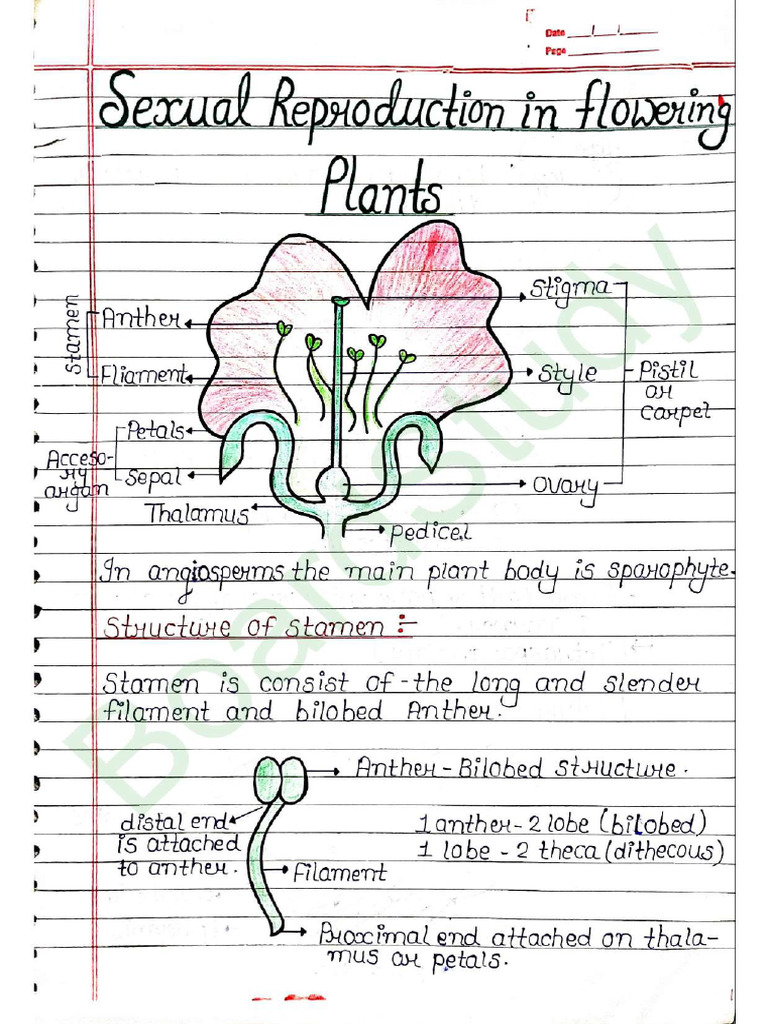 Date
Page
Sexual Reproduction in flowering
Plants
Stamen
Anther
Fliament
Petals
Sepal
Acceso-
ry
argan
Thalamus
Pedicel
Stigma
Style
Ovary
Pistil
or
Carpel
In angiosperms the main plant body is sparophyte.
Structure of Stamen :-
Stamen is consist of the long and slender
filament and bilobed Anther.
Anther - Bilobed structure.
distal end
is attached
to anther.
1 anther - 2 lobe (bilobed)
1 lobe - 2 theca (dithecous)
Filament
Proximal end attached on thala-
mus or petals.
BoardStudy